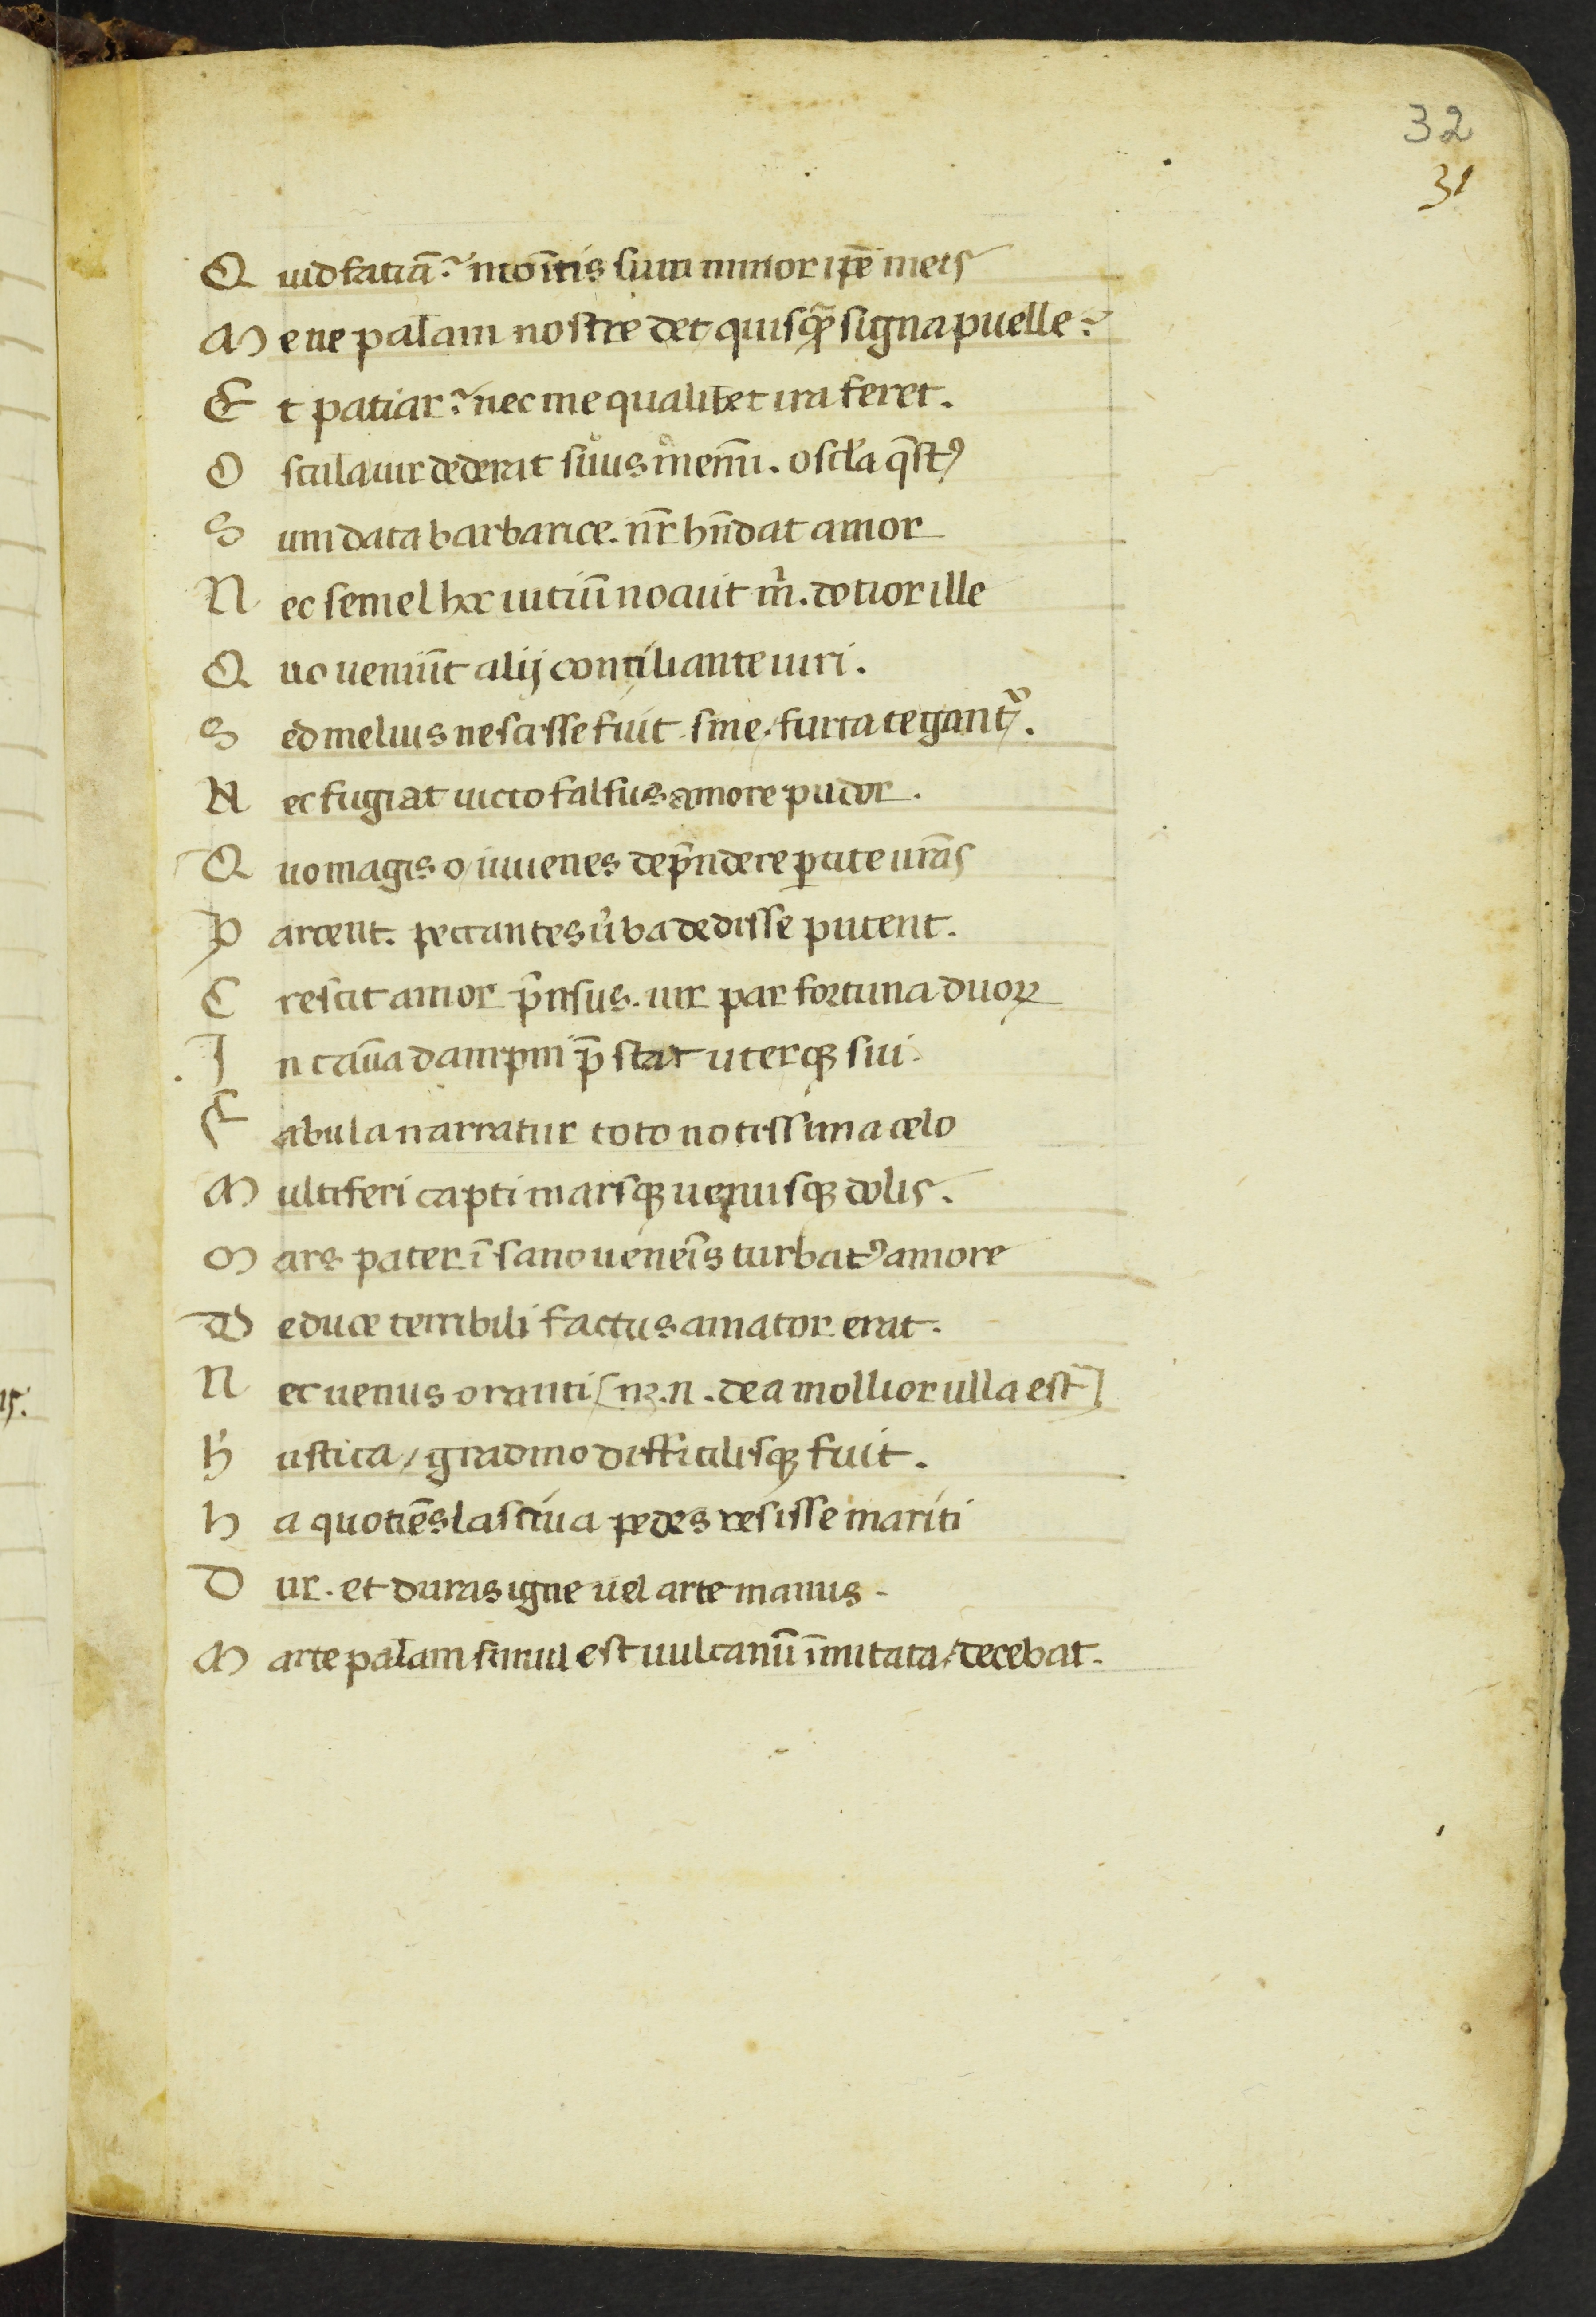 32
31
Q uid fatiā? moĩtis sum minor ip̄e meis
M ene palam nostre det quisq̄ signa puelle?
E t patiar? nec me qualibet ira feret.
O scula uir dederat suus memi. oscła q̄stꝰ
S um data barbarice. nr̄ hn̄dat amor
N ec semel hoc uitiū nocuit m̄. dotior ille
Q uo ueniūt alij contiliante uiri.
S ed melius nescisse fuit sine furta tegantᷣ.
N ec fugiat uicto falsus amore pudor.
Q uo magis o iuuenes dep̄ndere ꝑcite ur̄as
P arcent. peccantes ūba dedisse putent.
C rescit amor p̄nsus. uir par fortuna duoꝝ
I n cauā dampni p̄stat uterqꝫ sui.
F abula narratur toto notissima celo
M ulciferi capti marsqꝫ uenusqꝫ dolis.
M ars pater īsano ueneīs turbatꝰ amore
D e duce terribili factus amator erat.
N ec uenus oranti [nꝫ.n. dea mollior ulla est]
R ustica / gradiuo diffitilisqꝫ fuit.
h a quotiēs lasciua pedes resisse mariti
D ur. et duras igne uel arte manus.
M arte palam simul est uulcanū īmitata / decebat.